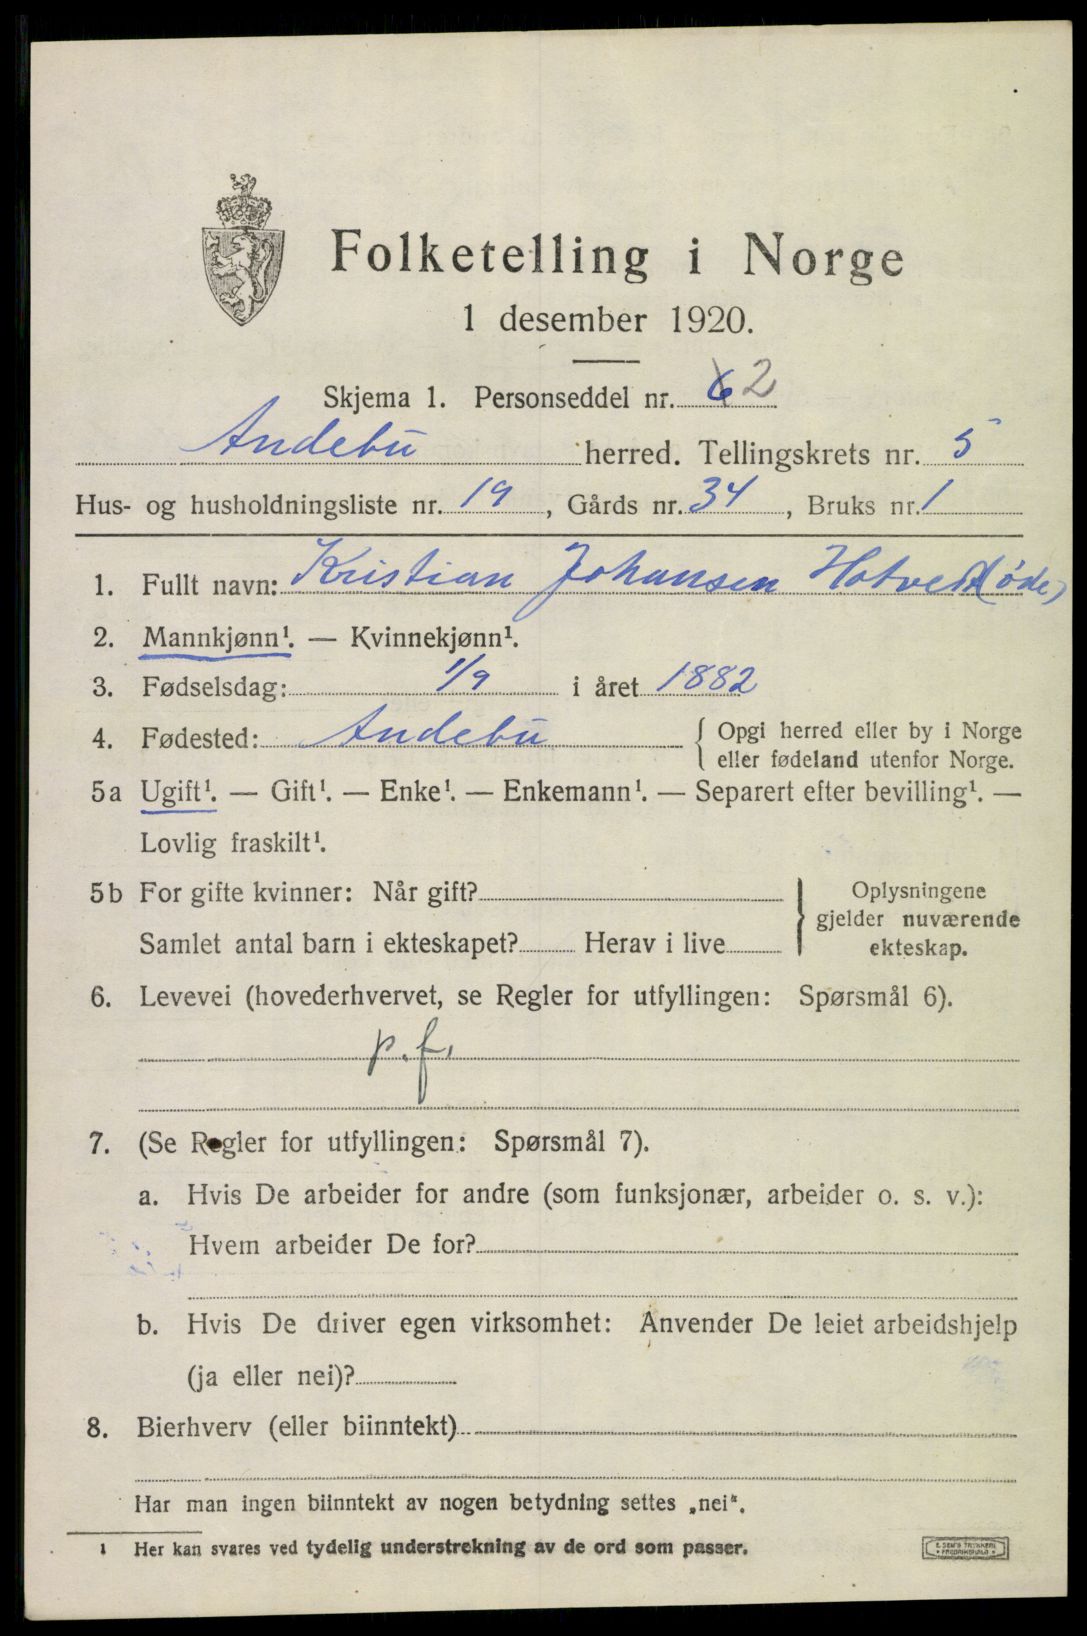 Folketelling i Norge
1 desember 1920.
Skjema 1. Personseddel nr. 6 2
Andebu herred. Tellingskrets nr. 5
Hus- og husholdningsliste nr. 19, Gårds nr. 34, Bruks nr. 1
1. Fullt navn: Kristian Johansen Hotvedt (øde)
2. Mannkjønn¹. — Kvinnekjønn¹.
3. Fødselsdag: 1/9 i året 1882
4. Fødested: Andebu { Opgi herred eller by i Norge
eller fødeland utenfor Norge.
5a Ugift¹. — Gift¹. — Enke¹. — Enkemann¹. — Separert efter bevilling¹. —
Lovlig fraskilt¹.
5b For gifte kvinner: Når gift?
Samlet antal barn i ekteskapet? Herav i live
} Oplysningene
gjelder nuværende
ekteskap.
6. Levevei (hovederhvervet, se Regler for utfyllingen: Spørsmål 6).
p.f.
7. (Se Regler for utfyllingen: Spørsmål 7).
a. Hvis De arbeider for andre (som funksjonær, arbeider o. s. v.):
Hvem arbeider De for?
b. Hvis De driver egen virksomhet: Anvender De leiet arbeidshjelp
(ja eller nei)?
8. Bierhverv (eller biinntekt)
Har man ingen biinntekt av nogen betydning settes „nei".
1 Her kan svares ved tydelig understrekning av de ord som passer.
E. SEM'S TRYKKERI
• FREDRIKSHALD •